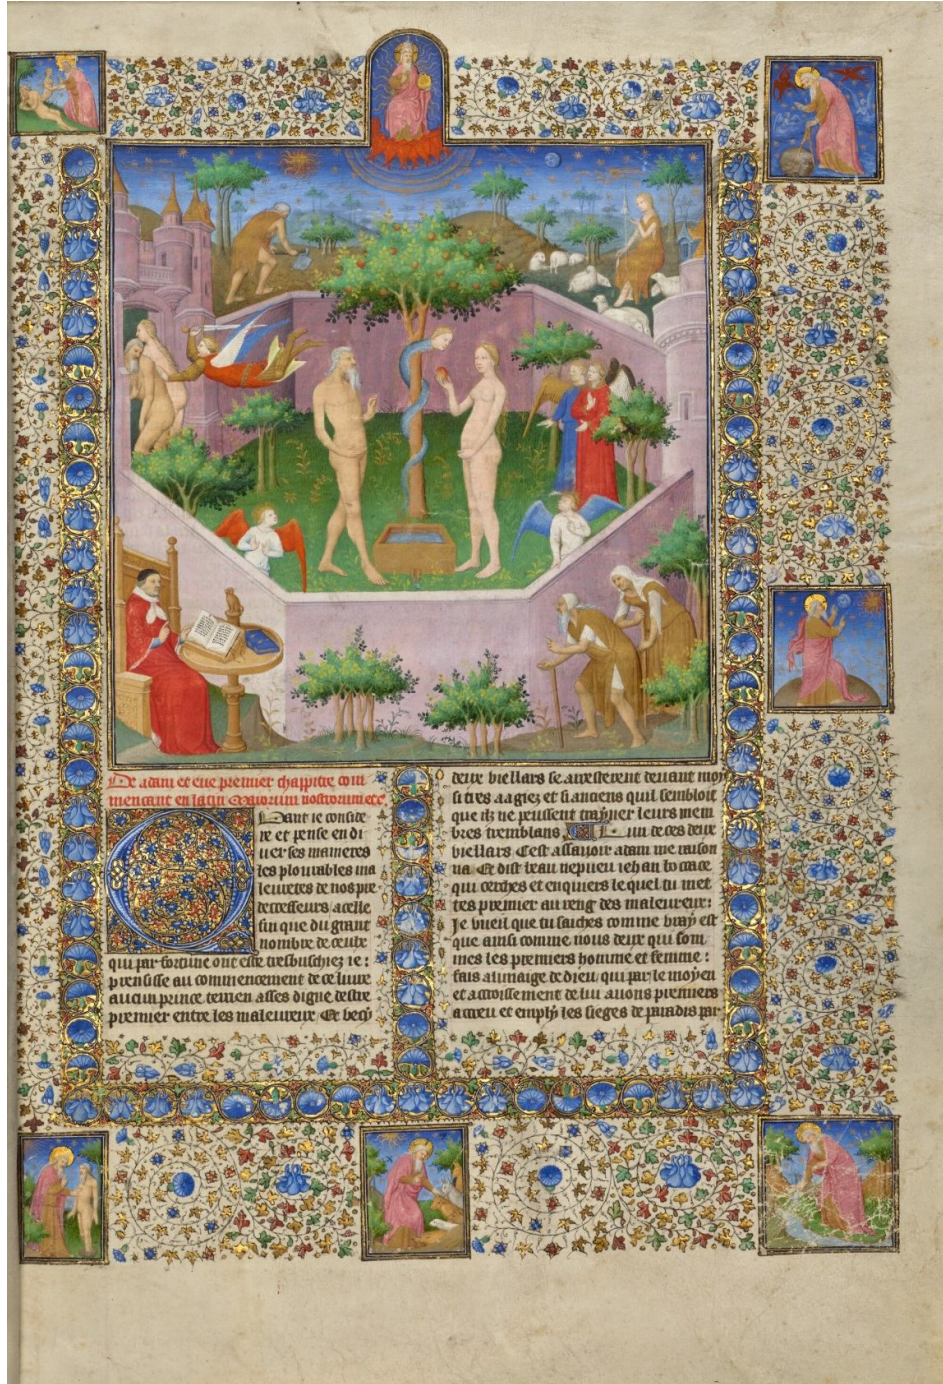 De adam et eve premier chappitre com
mencant en latin Maiorum nostrorum etc.
Quant ie considere
re et pense en di
uerses manieres
les plourables ma
leuretez de nos pre
decesseurs a celle
fin que du grant
nombre de ceulx
qui par fortune ont este tresbuschiez ie :
prensisse au commencement de ce liure
aucun prince terrien asses digne destre
premier entre les maleureux. Et vecy
deux viellars se aresterent deuant moy
si tres aagiez et si anciens quil sembloit
que ilz ne peussent traynier leurs mem
bres tremblans. Lun de ces deux
viellars Cest assauoir adam me raison
na. Et dist beau nepueu iehan bocace
qui cerches et enquiers le quel tu met
tes premier au reng des maleureux :
Je vueil que tu saiches comme vray est
que ainsi comme nous deux qui som
mes les premiers homme et femme :
fais a limaige de dieu, qui par le moyen
et accroissement de lui auons premiers
accreu et emply les sieges de paradis par